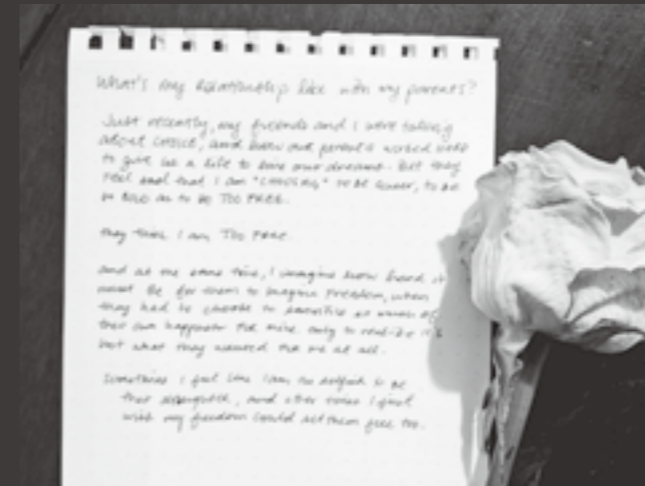 What's my relationship like with my parents?
Just recently, my friends and I were talking
about CHOICE, and how our parents worked hard
to give us a life to live our dreams. But they
feel sad that I am "CHOOSING" to be queer, to be
so BOLD as to BE TOO FREE.
they think I am TOO FREE.
and at the same time, I imagine how hard it
must be for them to imagine FREEDOM, when
they had to choose to sacrifice so much of
their own happiness for mine only to realize it's
not what they wanted for me at all.
Sometimes I feel like I am too selfish to be
their daughter, and other times I
wish my freedom could set them free too.